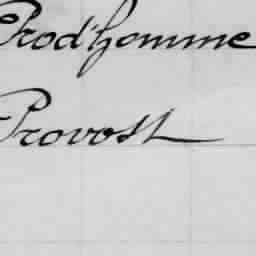 Prod'homme
Provost